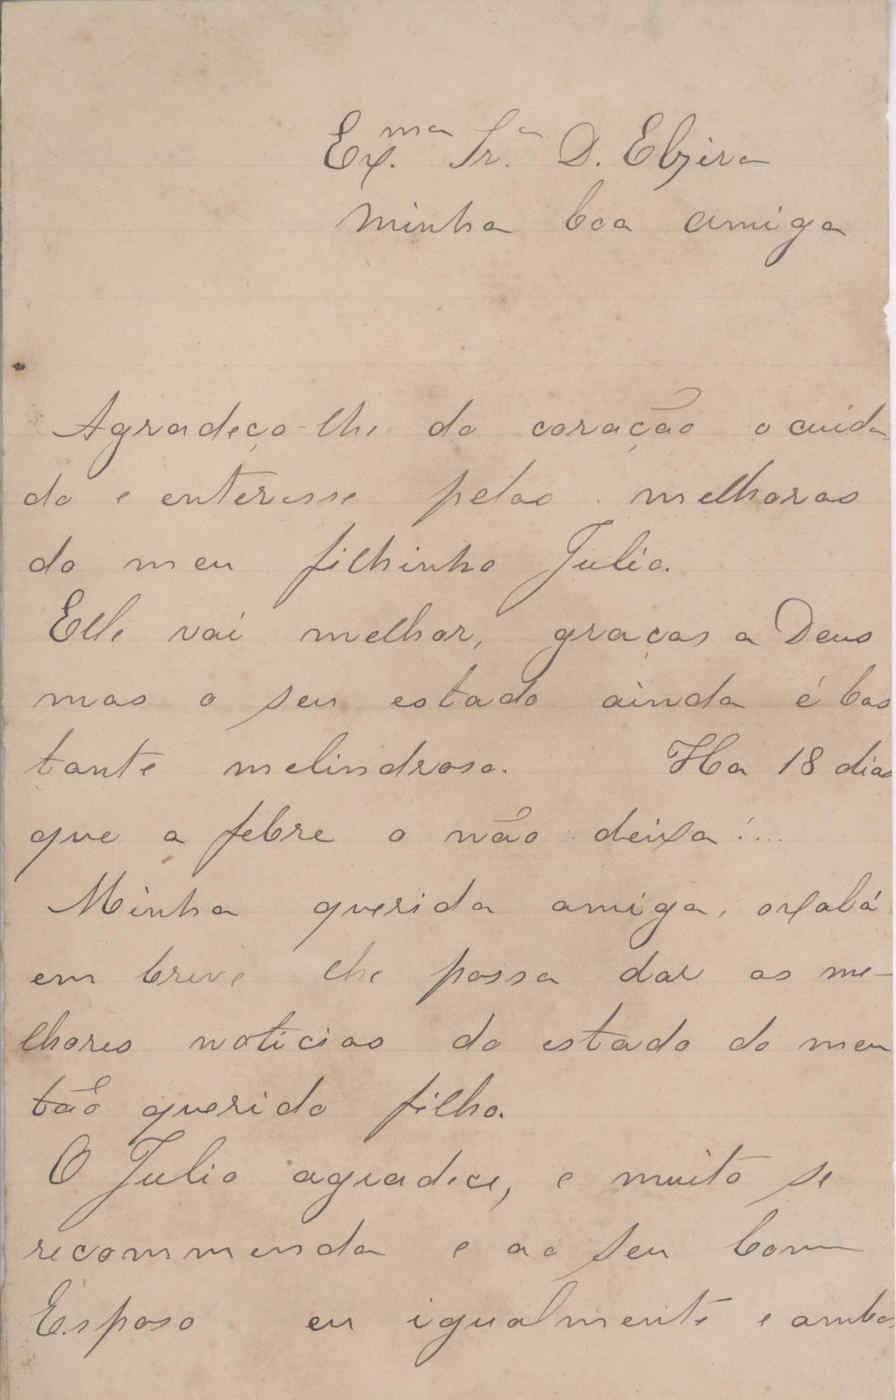 Ex.ma Sr.a D. Elzira
Minha boa amiga
Agradeço-lhe do coração o cuida
do e enteresse pelas melhoras
do meu filhinho Julio.
Elle vai melhor, graças a Deus
mas o seu estado ainda é bas
tante melindroso. Ha 18 dias
que a febre o não deixa!...
Minha querida amiga, oxalá
em breve lhe possa dar as me-
lhores noticias do estado do meu
tão querido filho.
O Julio agradece, e muito se
recommenda e ao seu bom
Esposo eu igualmente e ambos